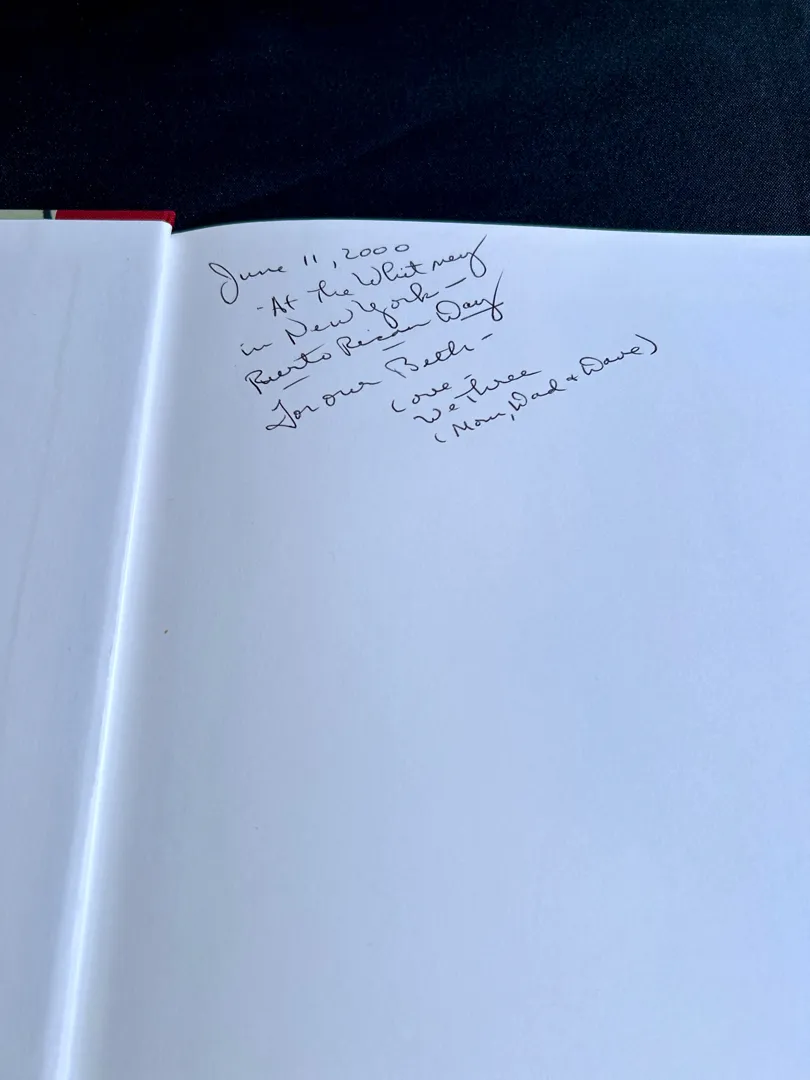 June 11, 2000
- At the Whitney
in New York -
Puerto Rican Day
For our Beth -
Love -
We three
(Mom, Dad + Dave)